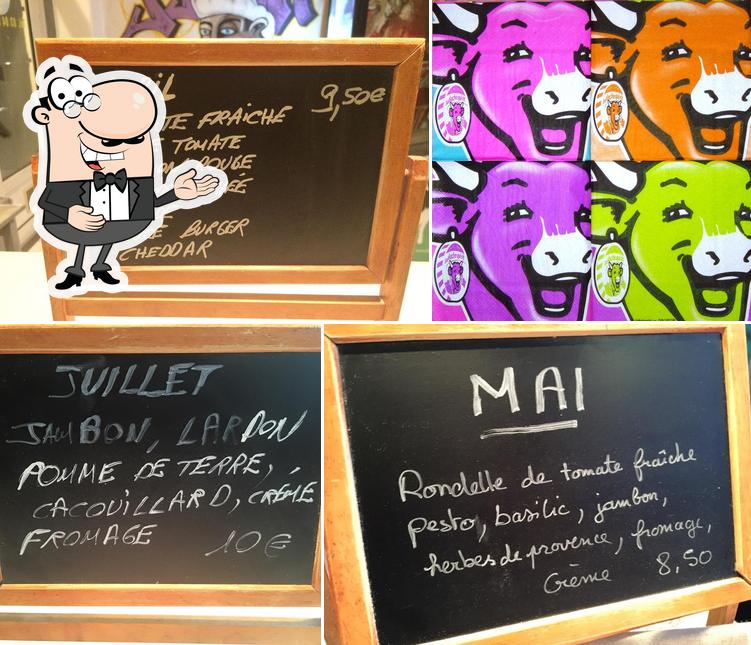 9,50€
FRAICHE
TOMATE
ROUGE
BURGER
CHEDDAR
JUILLET
JAMBON, LARDON
POMME DE TERRE,
CACOUILLARD, CRÈME
FROMAGE 10€
MAI
Rondelle de tomate fraîche
pesto, basilic, jambon,
herbes de provence, fromage,
Crème 8,50